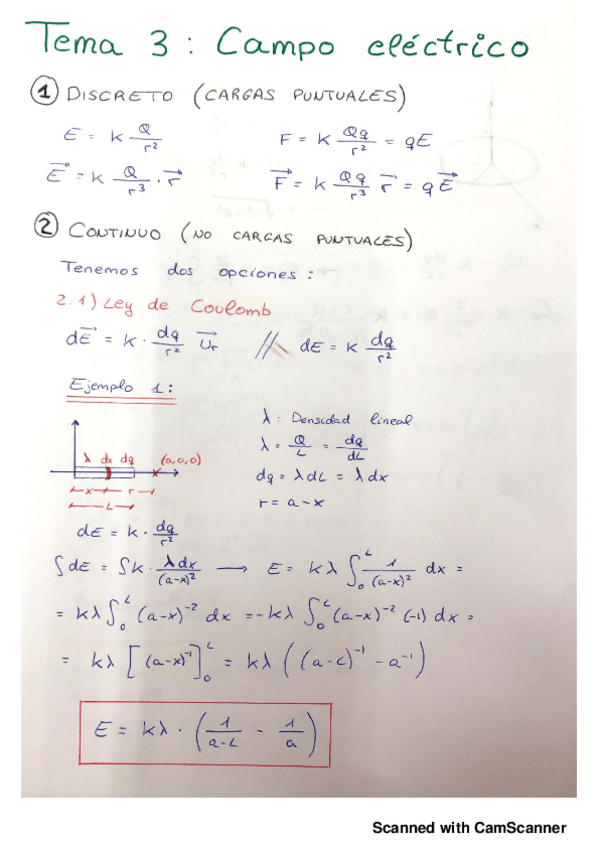 Tema 3 : Campo eléctrico
① DISCRETO (CARGAS PUNTUALES)
E = K Q/r² F = K Qq/r² = qE
E⃗ = K Q/r³ · r⃗ F⃗ = K Qq/r³ r⃗ = q E⃗
② CONTINUO (NO CARGAS PUNTUALES)
Tenemos dos opciones :
2.1) Ley de Coulomb
dE⃗ = K · dq/r² U⃗r // dE = K dq/r²
Ejemplo 1 :
λ : Densidad lineal
λ = Q/L = dq/dL
dq = λ dL = λ dx
r = a - x
λ dx dq (a,0,0)
x r
L
dE = K · dq/r²
∫ dE = ∫ K · λdx/(a-x)² → E = K λ ∫₀ᴸ 1/(a-x)² dx =
= Kλ ∫₀ᴸ (a-x)⁻² dx = -Kλ ∫₀ᴸ (a-x)⁻² (-1) dx =
= Kλ [(a-x)⁻¹]₀ᴸ = Kλ ((a-L)⁻¹ - a⁻¹)
E = Kλ · (1/a-L - 1/a)
Scanned with CamScanner